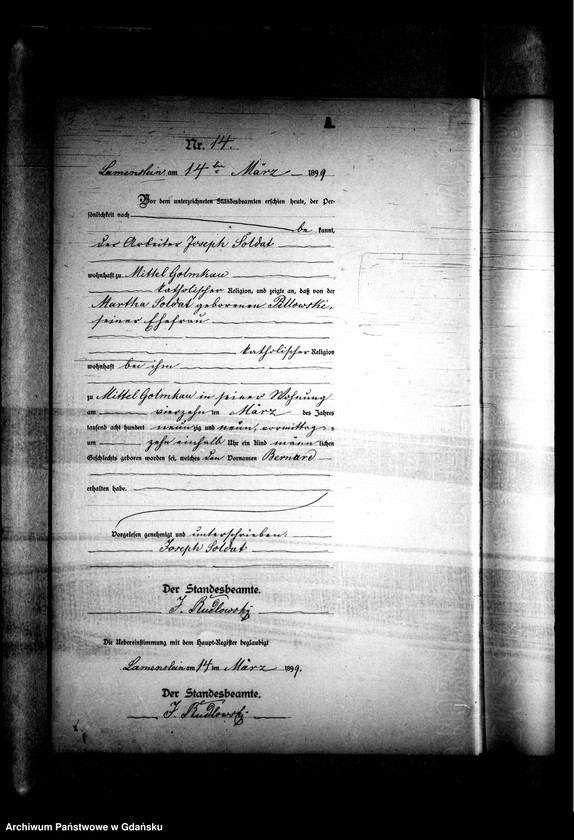 A.
Nr. 14.
Lamenstein am 14ten März 1899
Vor dem unterzeichneten Standesbeamten erschien heute, der Per-
sönlichkeit nach
be kannt,
der Arbeiter Joseph Soldat
wohnhaft zu Mittel Golmkau
katholischer Religion, und zeigte an, daß von der
Martha Soldat geborenen Pillowski,
seiner Ehefrau
katholischer Religion
wohnhaft bei ihm
zu Mittel Golmkau in seiner Wohnung
am vierzehn ten März des Jahres
tausend acht hundert neunzig und neun, vormittags
um zehn einhalb Uhr ein Kind männlichen
Geschlechts geboren worden sei, welches den Vornamen Bernard
erhalten habe.
Vorgelesen genehmigt und unterschrieben:
Joseph Soldat
Der Standesbeamte.
J. Rudlowsky
Die Uebereinstimmung mit dem Haupt-Register beglaubigt
Lamenstein am 14 ten März 1899.
Der Standesbeamte.
J. Rudlowsky
Archiwum Państwowe w Gdańsku